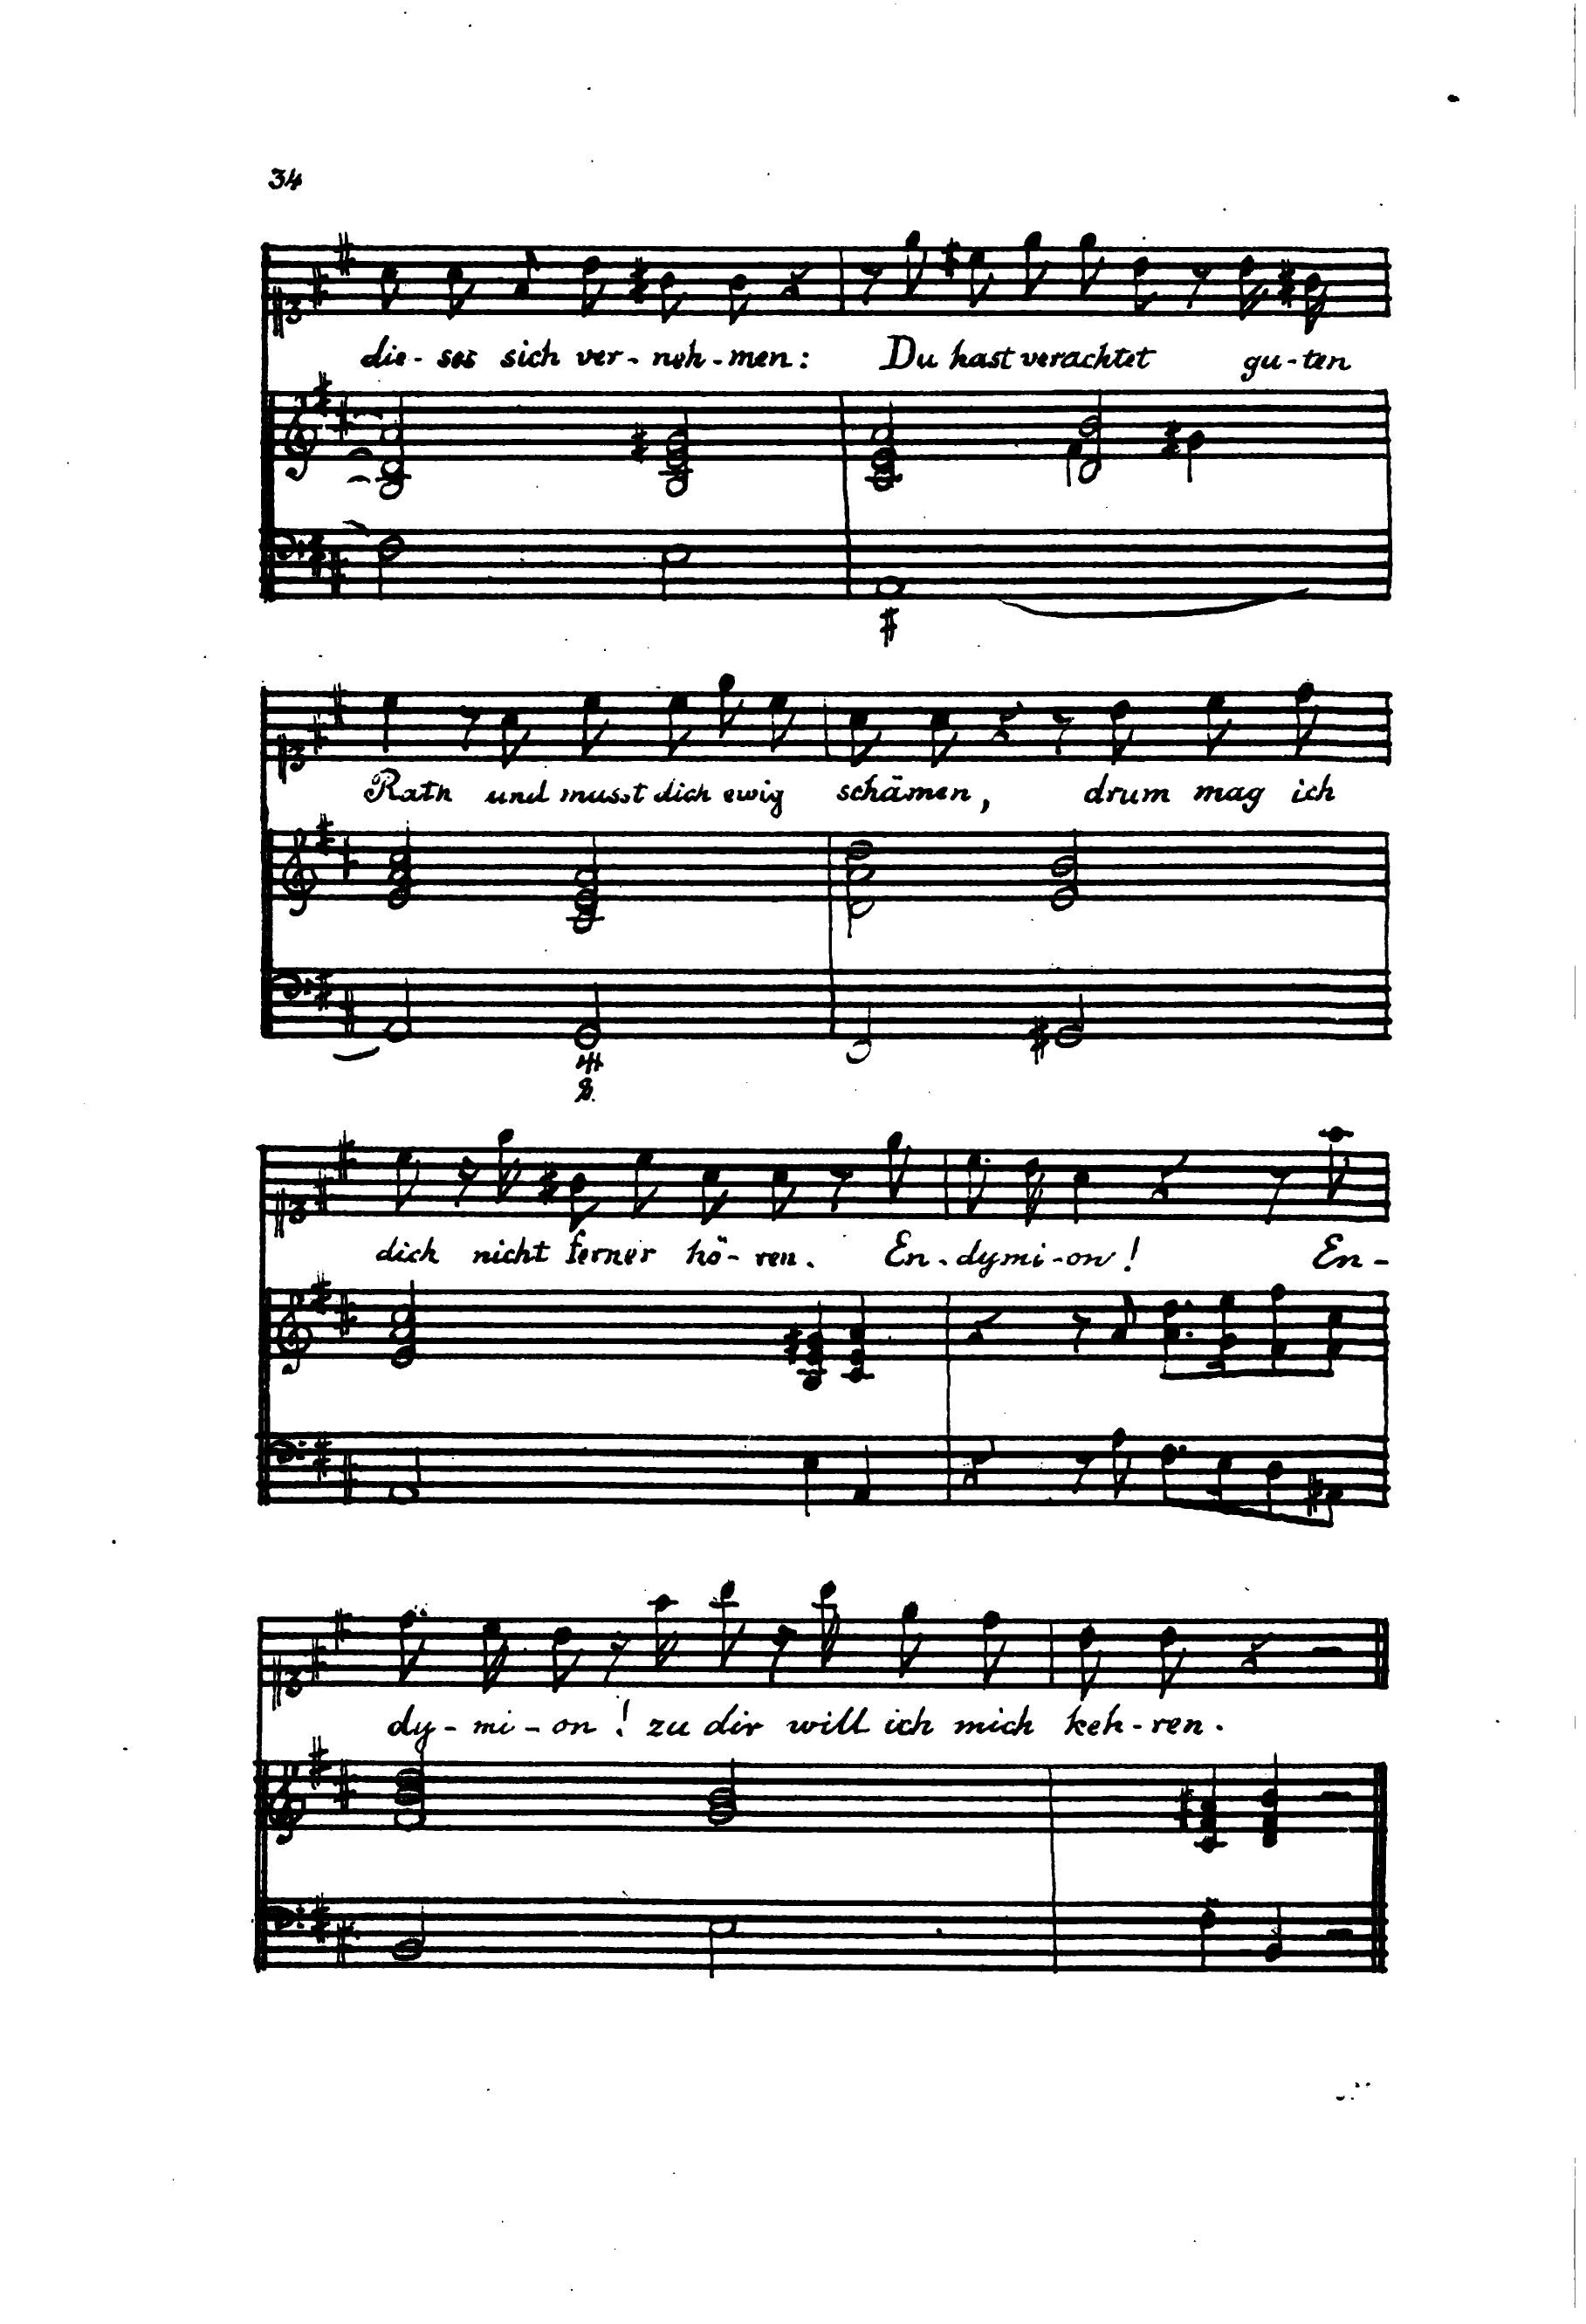 34
die - ses sich ver - neh - men: Du hast verachtet gu - ten
Rath und musst dich ewig schämen, drum mag ich
dich nicht ferner hö - ren. En - dymi - on! En -
dy - mi - on! zu dir will ich mich keh - ren.